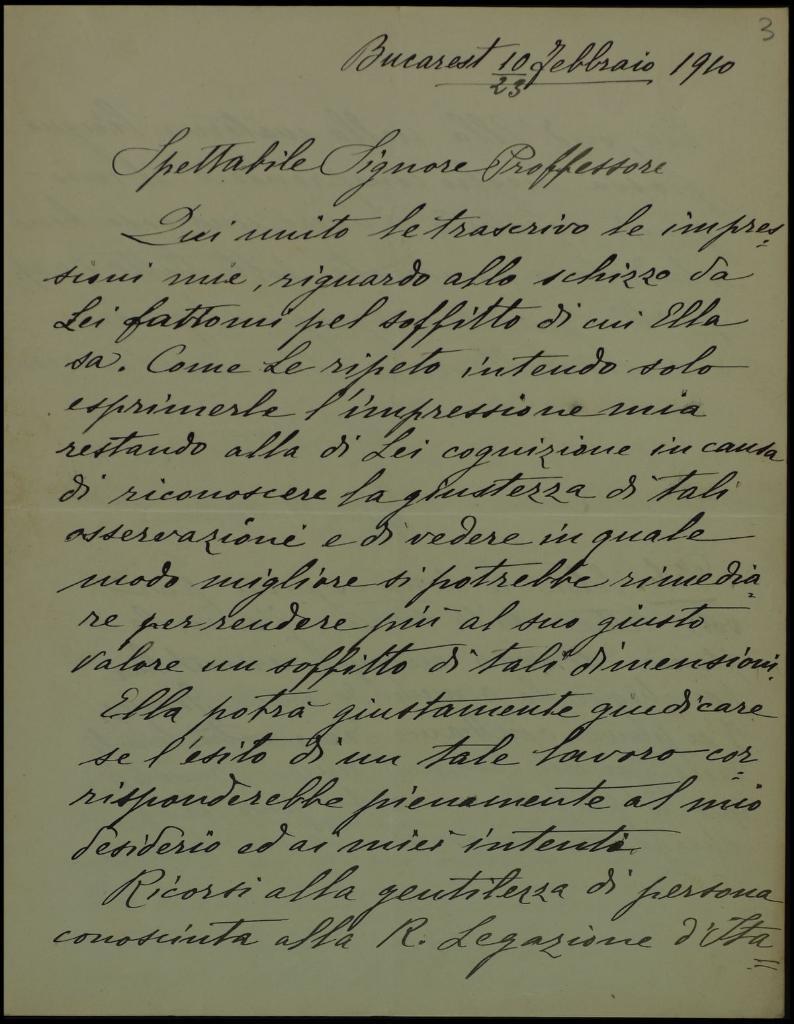 3
Bucarest 10/23 Febbraio 1910
Spettabile Signore Proffessore
Qui unito le trascrivo le impres=
sioni mie, riguardo allo schizzo da
Lei fattomi pel soffitto di cui Ella
sa. Come Le ripeto intendo solo
esprimerle l'impressione mia
restando alla di Lei cognizione in causa
di riconoscere la giustezza di tali
osservazioni e di vedere in quale
modo migliore si potrebbe rimedia=
re per rendere più al suo giusto
valore un soffitto di tali dimensioni.
Ella potrà giustamente giudicare
se l'esito di un tale lavoro cor=
risponderebbe pienamente al mio
desiderio ed ai miei intenti.
Ricorsi alla gentilezza di persona
conosciuta alla R. Legazione d'Ita=